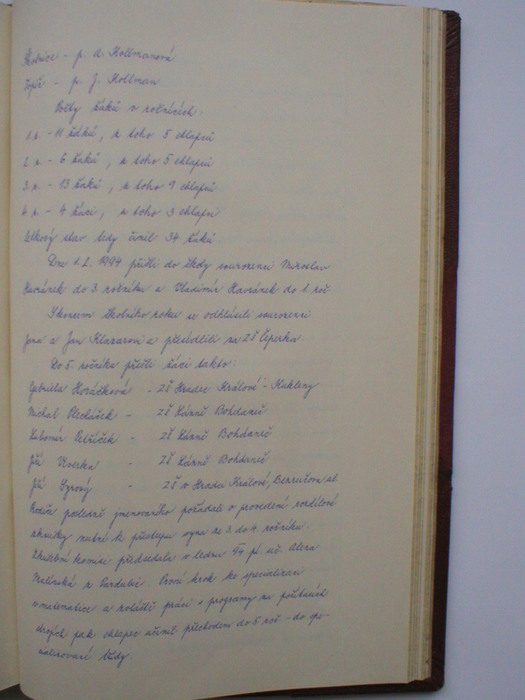 Školnice - p. A. Kollmanová
Topič - p. J. Kollman
Počty žáků v ročnících.
1. r. - 11 žáků, z toho 5 chlapců
2. r. - 6 žáků, z toho 5 chlapců
3. r. - 13 žáků, z toho 9 chlapců
4. r. - 4 žáci, z toho 3 chlapci
Celkový stav tedy činil 34 žáků.
Dne 1.2. 1994 přišli do školy sourozenci Miroslav
Havránek do 3. ročníku a Vladimír Havránek do 1. roč.
Skoncem školního roku se odhlásili sourozenci
Jana a Jan Klazarovi a přesídlili na ZŠ Čeperka.
Do 5. ročníku přešli žáci takto:
Gabriela Horáčková - ZŠ Hradec Králové - Kukleny
Michal - ZŠ Lázně Bohdaneč
Lubomír Petříček - ZŠ Lázně Bohdaneč
Jiří Kverka - ZŠ Lázně Bohdaneč
Jiří Syrový - ZŠ v Hradci Králové, Bezručova ul.
Rodiče posledně jmenovaného požádali o provedení rozdílové
zkoušky nutné k přestupu syna ze 3. do 4. ročníku.
Zkušební komisi předsedala v lednu 94 pí. uč. Alena
z Pardubic. První krok ke specializaci
v matematice a zvláště práci s programy na počítačích
pak chlapec učinil přechodem do 5. roč. do spe-
cializované třídy.